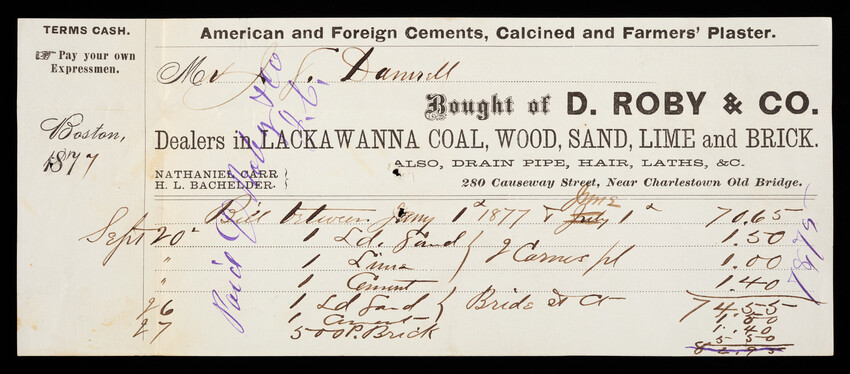 TERMS CASH.
☞ Pay your own
Expressmen.
Boston,
1877
American and Foreign Cements, Calcined and Farmers' Plaster.
M J. Damrell
Bought of D. ROBY & CO.
Dealers in LACKAWANNA COAL, WOOD, SAND, LIME and BRICK.
ALSO, DRAIN PIPE, HAIR, LATHS, &C.
NATHANIEL CARR
H. L. BACHELDER.
280 Causeway Street, Near Charlestown Old Bridge.
Bill between Jany 1st 1877 & July June 1st 70.65
Sept 20 1 Ld. Sand 1.50
" 1 Lime 1.00
" 1 Cement 1.40
Carnes pl
74.55
26 1 Ld Sand 1.50
1 Cement 1.40
Bridge St Ct
27 500 P. Brick 5 50
82.95
Paid D Roby & Co